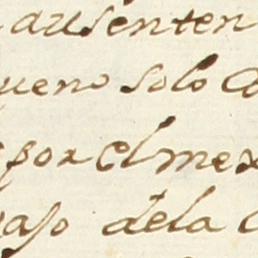 ausenten
ueno solo
por el me
aso dela